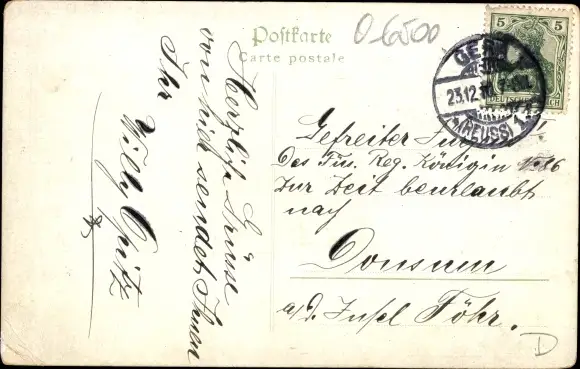 O-6500
Postkarte
Carte postale
5 5
DEUTSCHES REICH
GERA
23.12.
(REUSS)
Herzliche Grüsse
von hier sendet Ihnen
Ihr
Willy Opitz
Gefreiter
Des Füs. Reg. Königin No 86
zur Zeit beurlaubt
nach
Donsum
a/d. Insel Föhr.
D